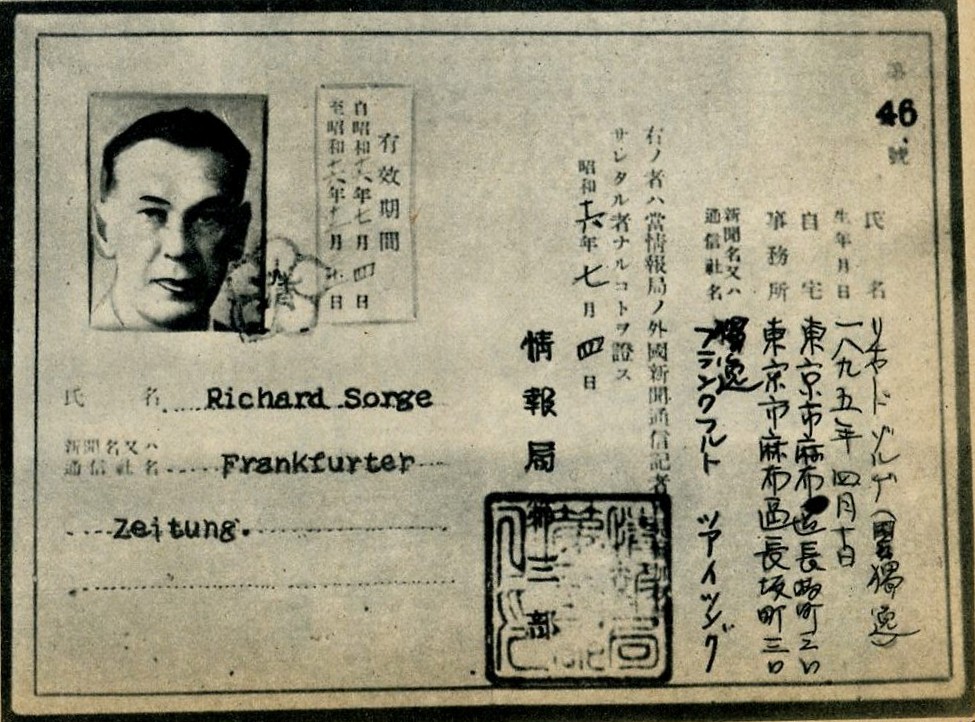 第46號
氏名 ゾルゲ 獨逸
生年月日 一八九五年四月十日
自宅 東京市麻布區長坂町
事務所 東京市麻布區長坂町三
新聞名又ハ 獨逸
通信社名 フランクフルト ツアイツング
右ノ者ハ當情報局ノ外國新聞通信記者
サレタル者ナルコトヲ證ス
昭和十六年七月四日
情報局第三部
有效期間
自昭和十六年七月四日
至昭和十六年 月 日
氏名 Richard Sorge
新聞名又ハ
通信社名 Frankfurter
Zeitung.